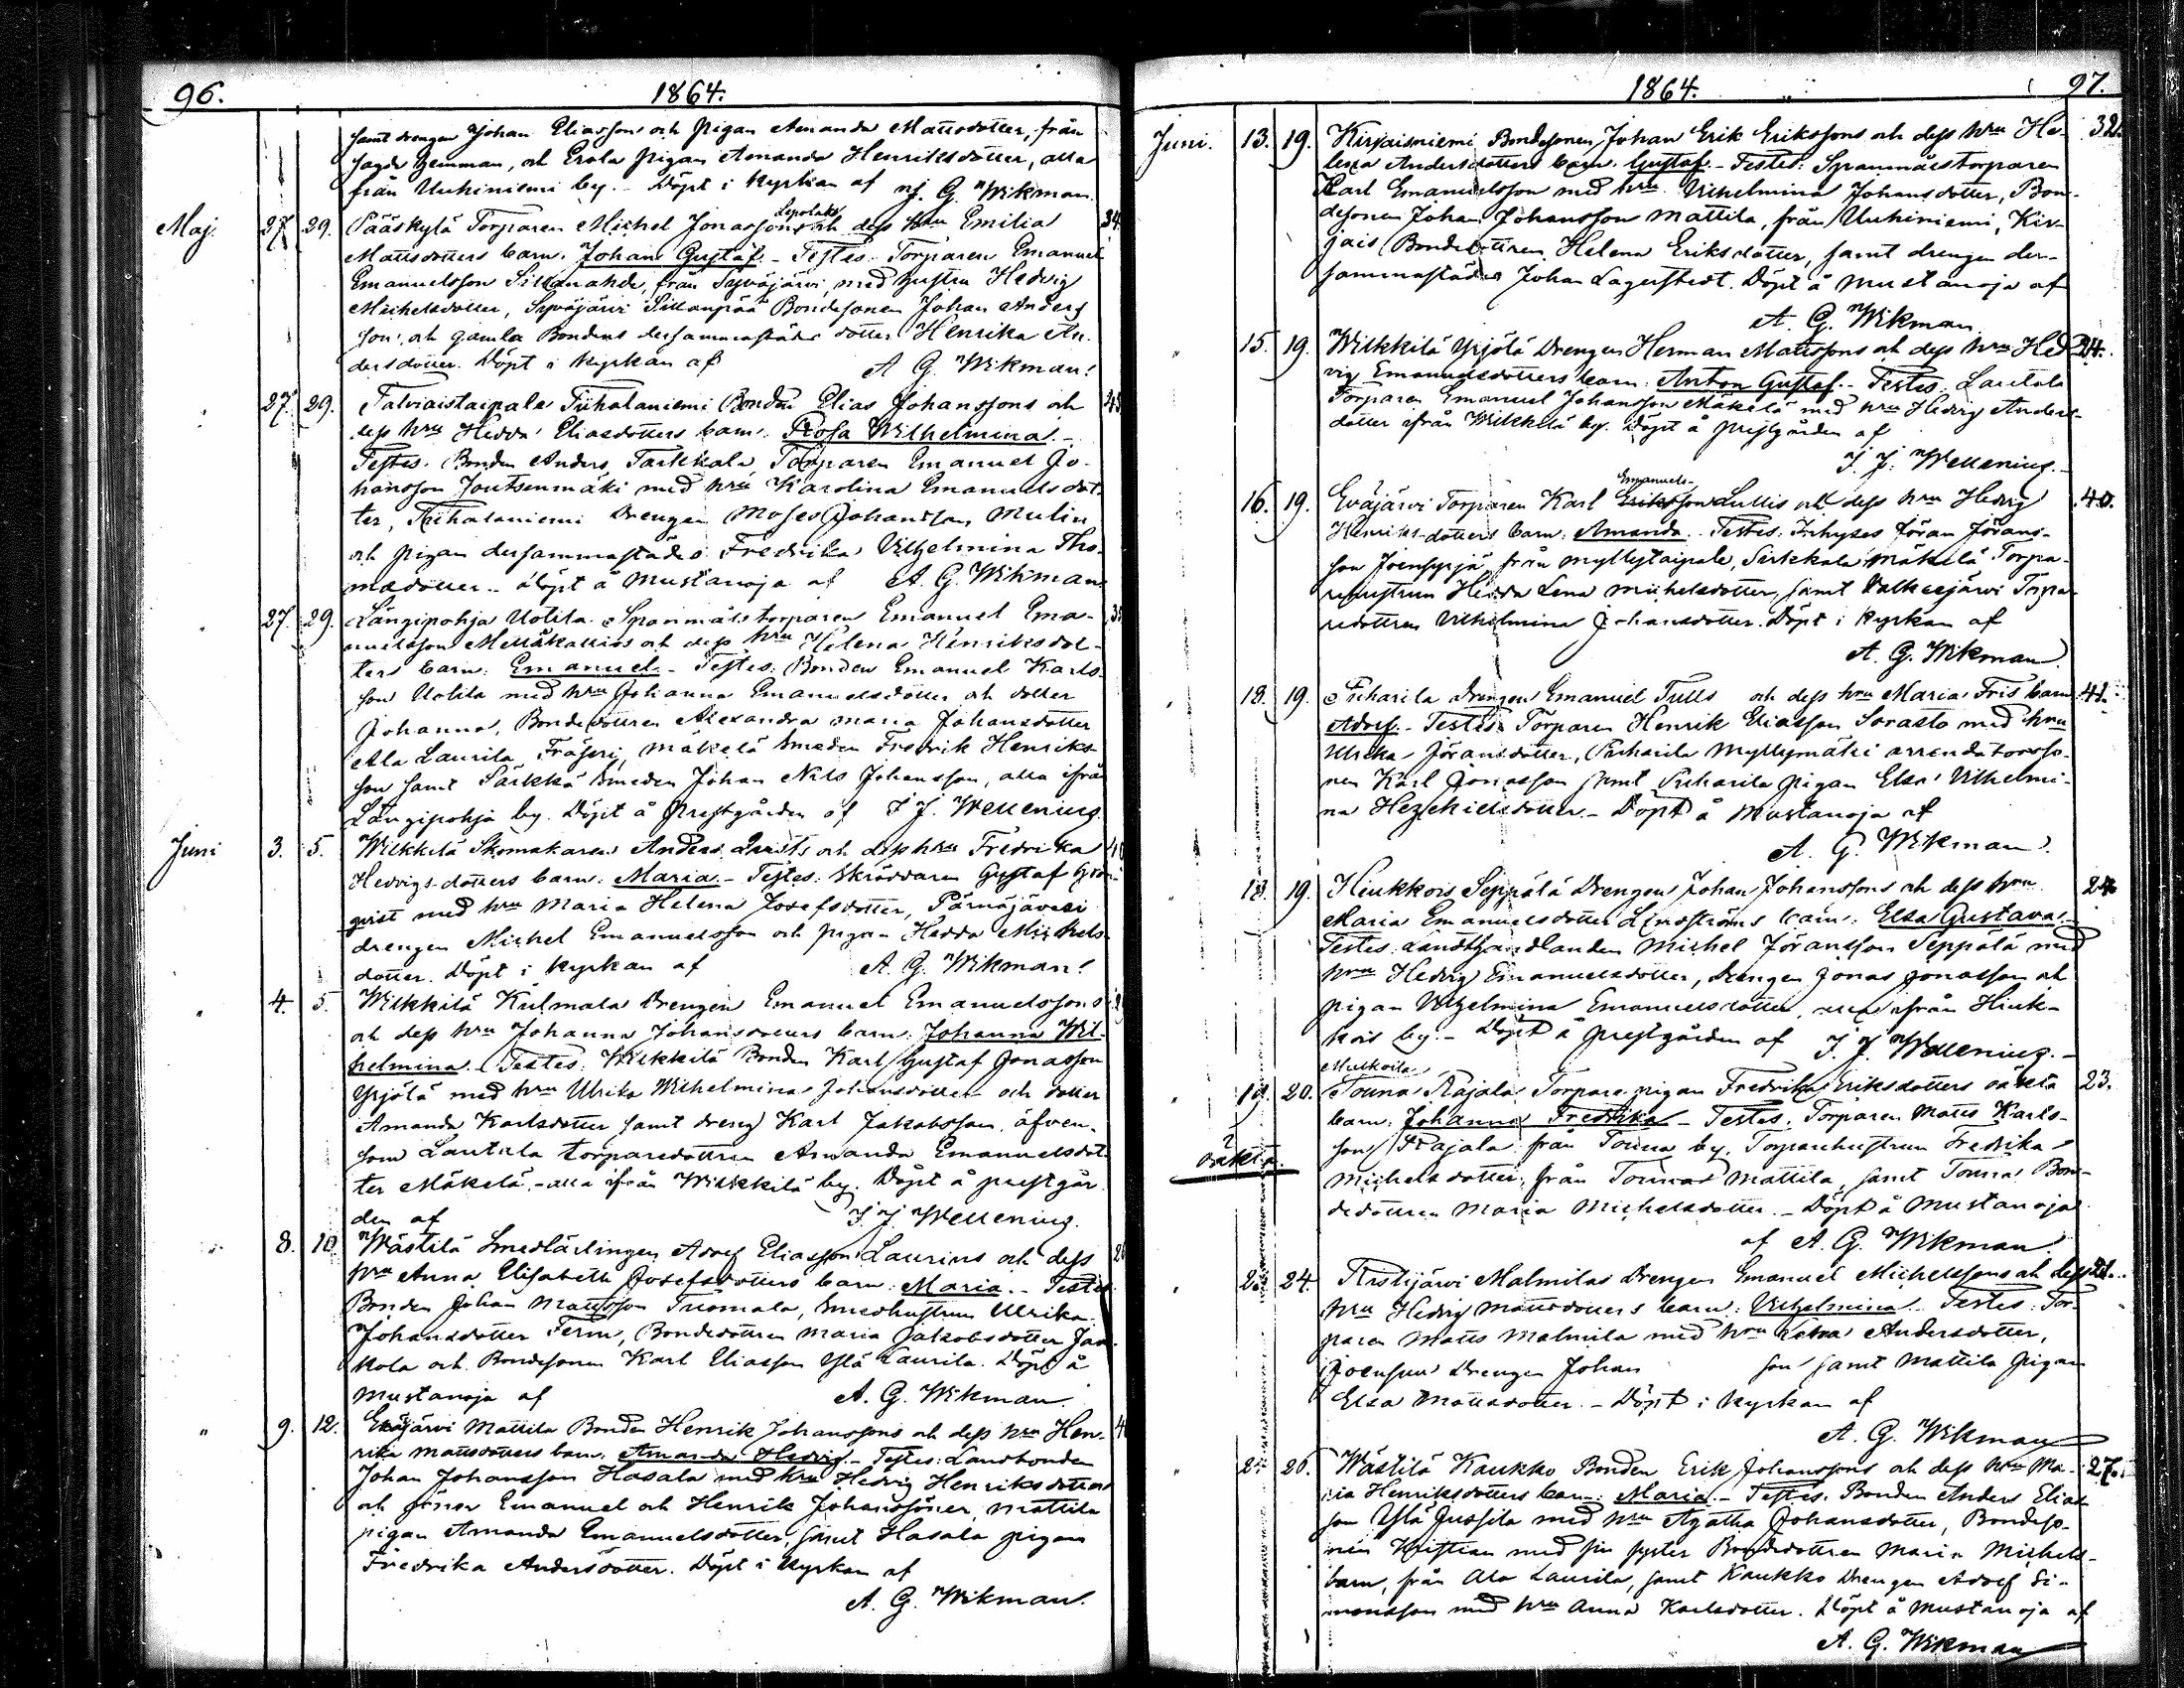 96. 1864.
samt drengen Johan Eliasson och pigan Amanda Mattsdotter, från
sagde hemman, och Erola pigan Amanda Henriksdotter, alla
från Uuhiniemi by. - Döpt i kyrkan af A. G. Wikman.
Maj. 27. 29. Pääskylä Torparen Michel Jonassons Lepolaks och dess hru Emilia 34.
Mattsdotters barn. Johan Gustaf. - Testes. Torparen Emanuel
Emanuelsson från Syväjärvi, med hustru Hedvig
Michelsdotter, Syväjärvi Sillanpää Bondesonen Johan Anders
son, och gamla Bondens dersammastädes dotter Henrika An-
dersdotter. Döpt i kyrkan af A. G. Wikman.
27. 29. Talviaistaipale Tiihalaniemi Bonden Elias Johanssons och
dess hru Hedda Eliasdotters barn. Rosa Wilhelmina. -
Testes. Bonden Anders Tarkkala, Torparen Emanuel Jo-
hansson Joutsenmäki med hru Karolina Emanuelsdot-
ter, Tiihalaniemi Drengen Moses Johansson Mulin
och pigan dersammastädes Fredrika Vilhelmina Tho-
masdotter. - Döpt å Mustanoja af A. G. Wikman
27. 29. Längipohja Uotila Spanmålstorparen Emanuel Ema-
nuelsson Metsäkallios och dess hru Helena Henriksdot-
ters barn: Emanuel. - Testes: Bonden Emanuel Karls-
son Uotila med hru Johanna Emanuelsdotter och dotter
Johanna, Bondedottren Alexandra Maria Johansdotter
Ala Laurila, Fräseri, Mäkelä Smeden Fredrik Henriks-
son samt Särkkä Smeden Johan Nils Johansson, alla ifrån
Längipohja by. Döpt å Prestgården af J. J. Wellenius.
Juni 3. 5. Wilkkilä Skomakaren Anders Qvists och dess hru Fredrika
Hedvigs-dotters barn: Maria. - Testes: Skräddaren Gustaf Grön-
qvist med hru Maria Helena Josefsdotter, Pärnäjävesi
drengen Michel Emanuelsson och pigan Hedda Michels-
dotter. Döpt i kyrkan af A. G. Wikman.
" 4. 5. Wilkkilä Kulmala Drengen Emanuel Emanuelssons
och dess hru Johanna Johansdotters barn: Johanna Wil-
helmina. Testes: Wilkkilä Bonden Karl Gustaf Jonasson
Yrjölä med hru Ulrika Wilhelmina Johansdotter och dotter
Amanda Karlsdotter samt dreng Karl Jakobsson, äfven-
som Lautala torparedottren Amanda Emanuelsdot-
ter Mäkelä, - alla ifrån Wilkkilä by. Döpt å prestgår-
den af J. J. Wellenius.
" 8. 10. Wästilä Smedlärlingen Adolf Eliasson Laurins och dess
hru Anna Elisabeth Josefsdotters barn: Maria. - Testes
Bonden Johan Mattsson Tuomala, Smedhustrun Ulrika
Johansdotter Ferm, Bondedottren Maria Jakobsdotter Jaa-
kola och Bondesonen Karl Eliasson Ylä Laurila. Döpt å
Mustanoja af A. G. Wikman.
" 9. 12. Eväjärvi Mattila Bonden Henrik Johanssons och dess hru Hen-
rika Mattsdotters barn: Amanda Hedvig. - Testes: Landbonden
Johan Johansson Hasala med hru Hedvig Henriksdotter
och söner Emanuel och Henrik Johanssöner, Mattila
pigan Amanda Emanuelsdotter, samt Hasala pigan
Fredrika Andersdotter. Döpt i kyrkan af
A. G. Wikman.
1864. 97.
Juni. 13. 19. Kirjaisniemi Bondesonen Johan Erik Erikssons och dess hru He- 32.
lena Andersdotters barn. Gustaf. - Testes: Spanmålstorparen
Karl Emanuelsson med hru Vilhelmina Johansdotter, Bon-
desonen Johan Johansson Mattila, från Uuhiniemi, Kir-
jais Bondedottren Helena Eriksdotter, samt drengen der-
sammastädes Johan Lagerstedt. Döpt å Mustanoja af
A. G. Wikman.
" 15. 19. Wilkkilä Yrjölä Drengen Herman Mattssons och dess hru Hed- 24.
vig Emanuelsdotters barn: Anton Gustaf. - Testes: Lautala
Torparen Emanuel Johansson Mäkelä med hru Hedvig Anders-
dotter ifrån Wilkkilä by. Döpt å prestgården af
J. J. Wellenius. -
16. 19. Eväjärvi Torparen Karl Emanuels- Eriksson Lullis och dess hru Hedvig 40.
Henriks-dotters barn: Amanda. - Testes: Inhyses Jöran Jörans-
son från Myllytaipale, Sirkkala Mäkelä Torpa-
rehustrun Hedda Lena Michelsdotter, samt Valkeejärvi Torpa-
redottren Vilhelmina Johansdotter. Döpt i kyrkan af
A. G. Wikman.
" 18. 19. Puharila Drengen Emanuel Tulls och dess hru Maria Fris barn 41.
Adolf. - Testes: Torparen Henrik Eliasson Sorasto med hru
Ulrika Jöransdotter, Puharila Myllymäki arrendatorsso-
nen Karl Jonasson samt Puharila pigan Elsa Vilhelmi-
na Hezekielsdotter. - Döpt å Mustanoja af
A. G. Wikman.
18. 19. Hiukkois Seppälä Drengen Johan Johanssons och dess hru 24
Maria Emanuelsdotter Lindströms barn: Elsa Gustava. -
Testes: Landthandlanden Michel Jöransson Seppälä med
hru Hedvig Emanuelsdotter, Drengen Jonas Jonasson och
pigan Vilhelmina Emanuelsdotter, alla ifrån Hiuk-
kois by. - Döpt å prestgården af J. J. Wellenius. -
Mutkoila
" 19. 20. Touna Rajala Torpare pigan Fredrika Eriksdotters oäkta 23.
barn: Johanna Fredrika - Testes. Torparen Matts Karls-
oäkta. son Rajala från Touna by, Torparehustrun Fredrika
Michelsdotter, från Tounas Mattila, samt Touna Bon-
dedottren Maria Michelsdotter. - Döpt å Mustanoja
af A. G. Wikman.
" 24. Malmilas Drengen Emanuel Michelssons och dess 21.
hru Hedvig Mattsdotters barn: Vilhelmina. Testes: Tor-
paren Matts Malmila med hru Andersdotter,
Joensuu Drengen Johan son samt Mattila pigan
Elsa Mattsdotter. - Döpt i kyrkan af
A. G. Wikman
" 26. Wästilä Kaukko Bonden Erik Johanssons och dess hru Ma- 27.
ria Henriksdotters barn: Maria. - Testes. Bonden Anders Elias-
son Ylä Jussila med hru Agatha Johansdotter, Bondeso-
nen Kristian med sin syster Bondedottren Maria Michels-
barn, från Ala Laurila, samt Kaukko Drengen Adolf Si-
monsson med hru Anna Karlsdotter. Döpt å Mustanoja af
A. G. Wikman